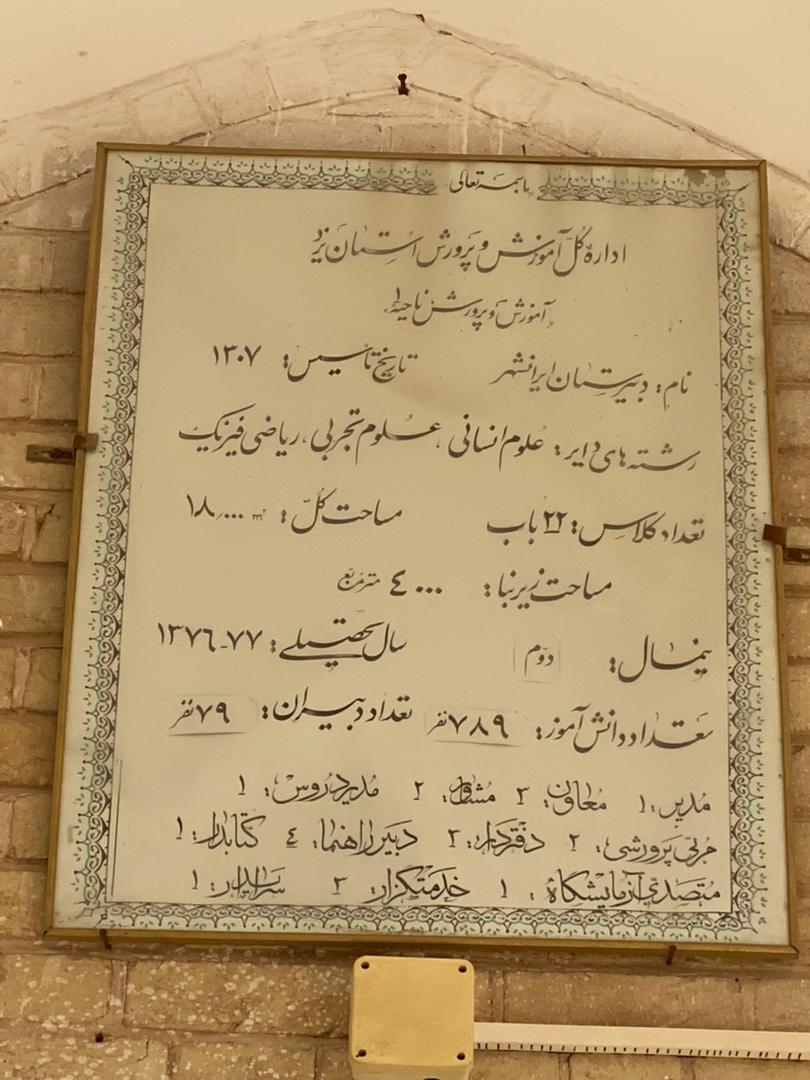 باسمه تعالی
اداره کل آموزش و پرورش استان یزد
آموزش و پرورش ناحیه ۱
نام: دبیرستان ایرانشهر تاریخ تاسیس: ۱۳۰۷
رشته های دایر: علوم انسانی، علوم تجربی، ریاضی فیزیک
تعداد کلاس: ۲۲ باب مساحت کلّ: ۱۸٫۰۰۰ m²
مساحت زیربنا: ۴۰۰۰ مترمربع
نیمسال: دوّم سال تحصیلی: ۷۷-۱۳۷۶
تعداد دانش آموز: ۷۸۹ نفر تعداد دبیران: ۷۹ نفر
مدیر: ۱ معاون: ۳ مشاور: ۲ مدیر دروس: ۱
مربی پرورشی: ۲ دفتردار: ۳ دبیر راهنما: ۴ کتابدار: ۱
متصدی آزمایشگاه: ۱ خدمتگزار: ۳ سرایدار: ۱